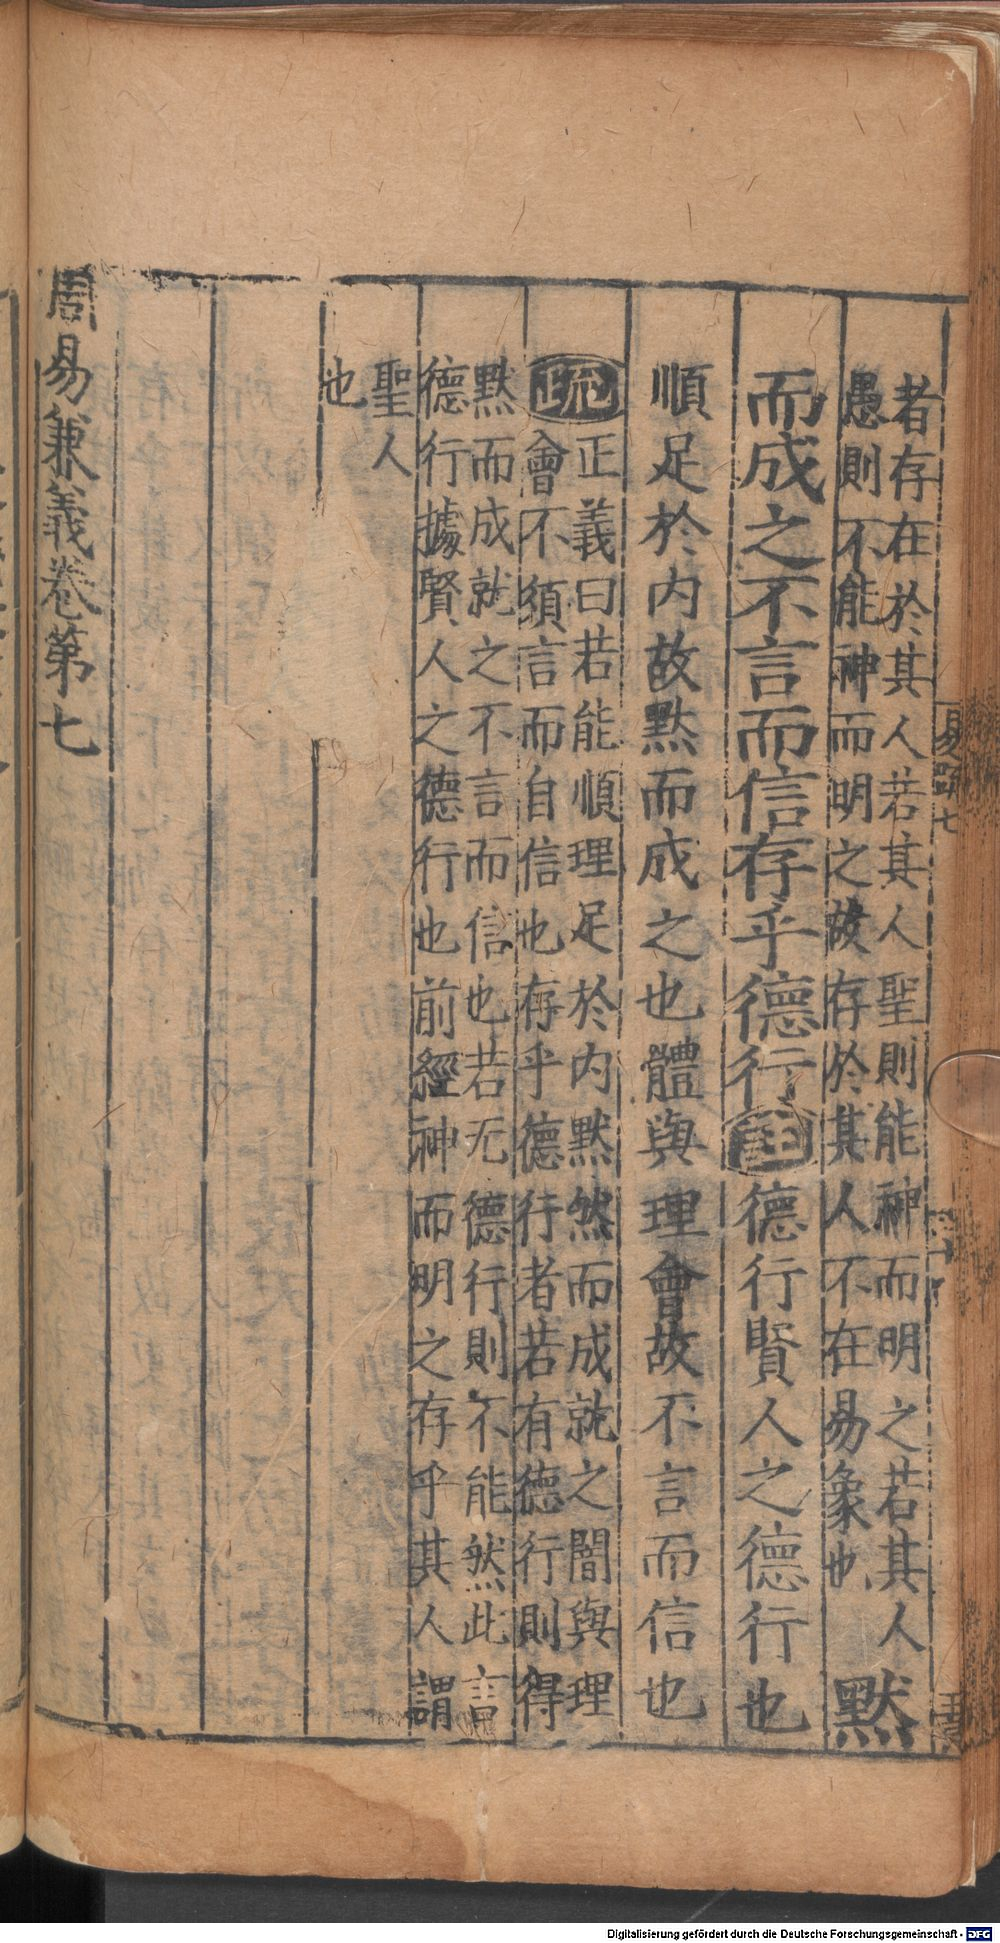 者存在於其人若其人聖則能神而明之若其人
愚則不能神而明之故存於其人不在易象也
默
而成之不言而信存乎德行
註
德行賢人之德行也
順足於內故默而成之也體與理會故不言而信也
疏
正義曰若能順理足於內默然而成就之闇與理
會不須言而自信也存乎德行者若有德行則得
默而成就之不言而信也若无德行則不能然此言
德行據賢人之德行也前經神而明之存乎其人謂
聖人
也
周易兼義卷第七
易疏七
Digitalisierung gefördert durch die Deutsche Forschungsgemeinschaft - DFG